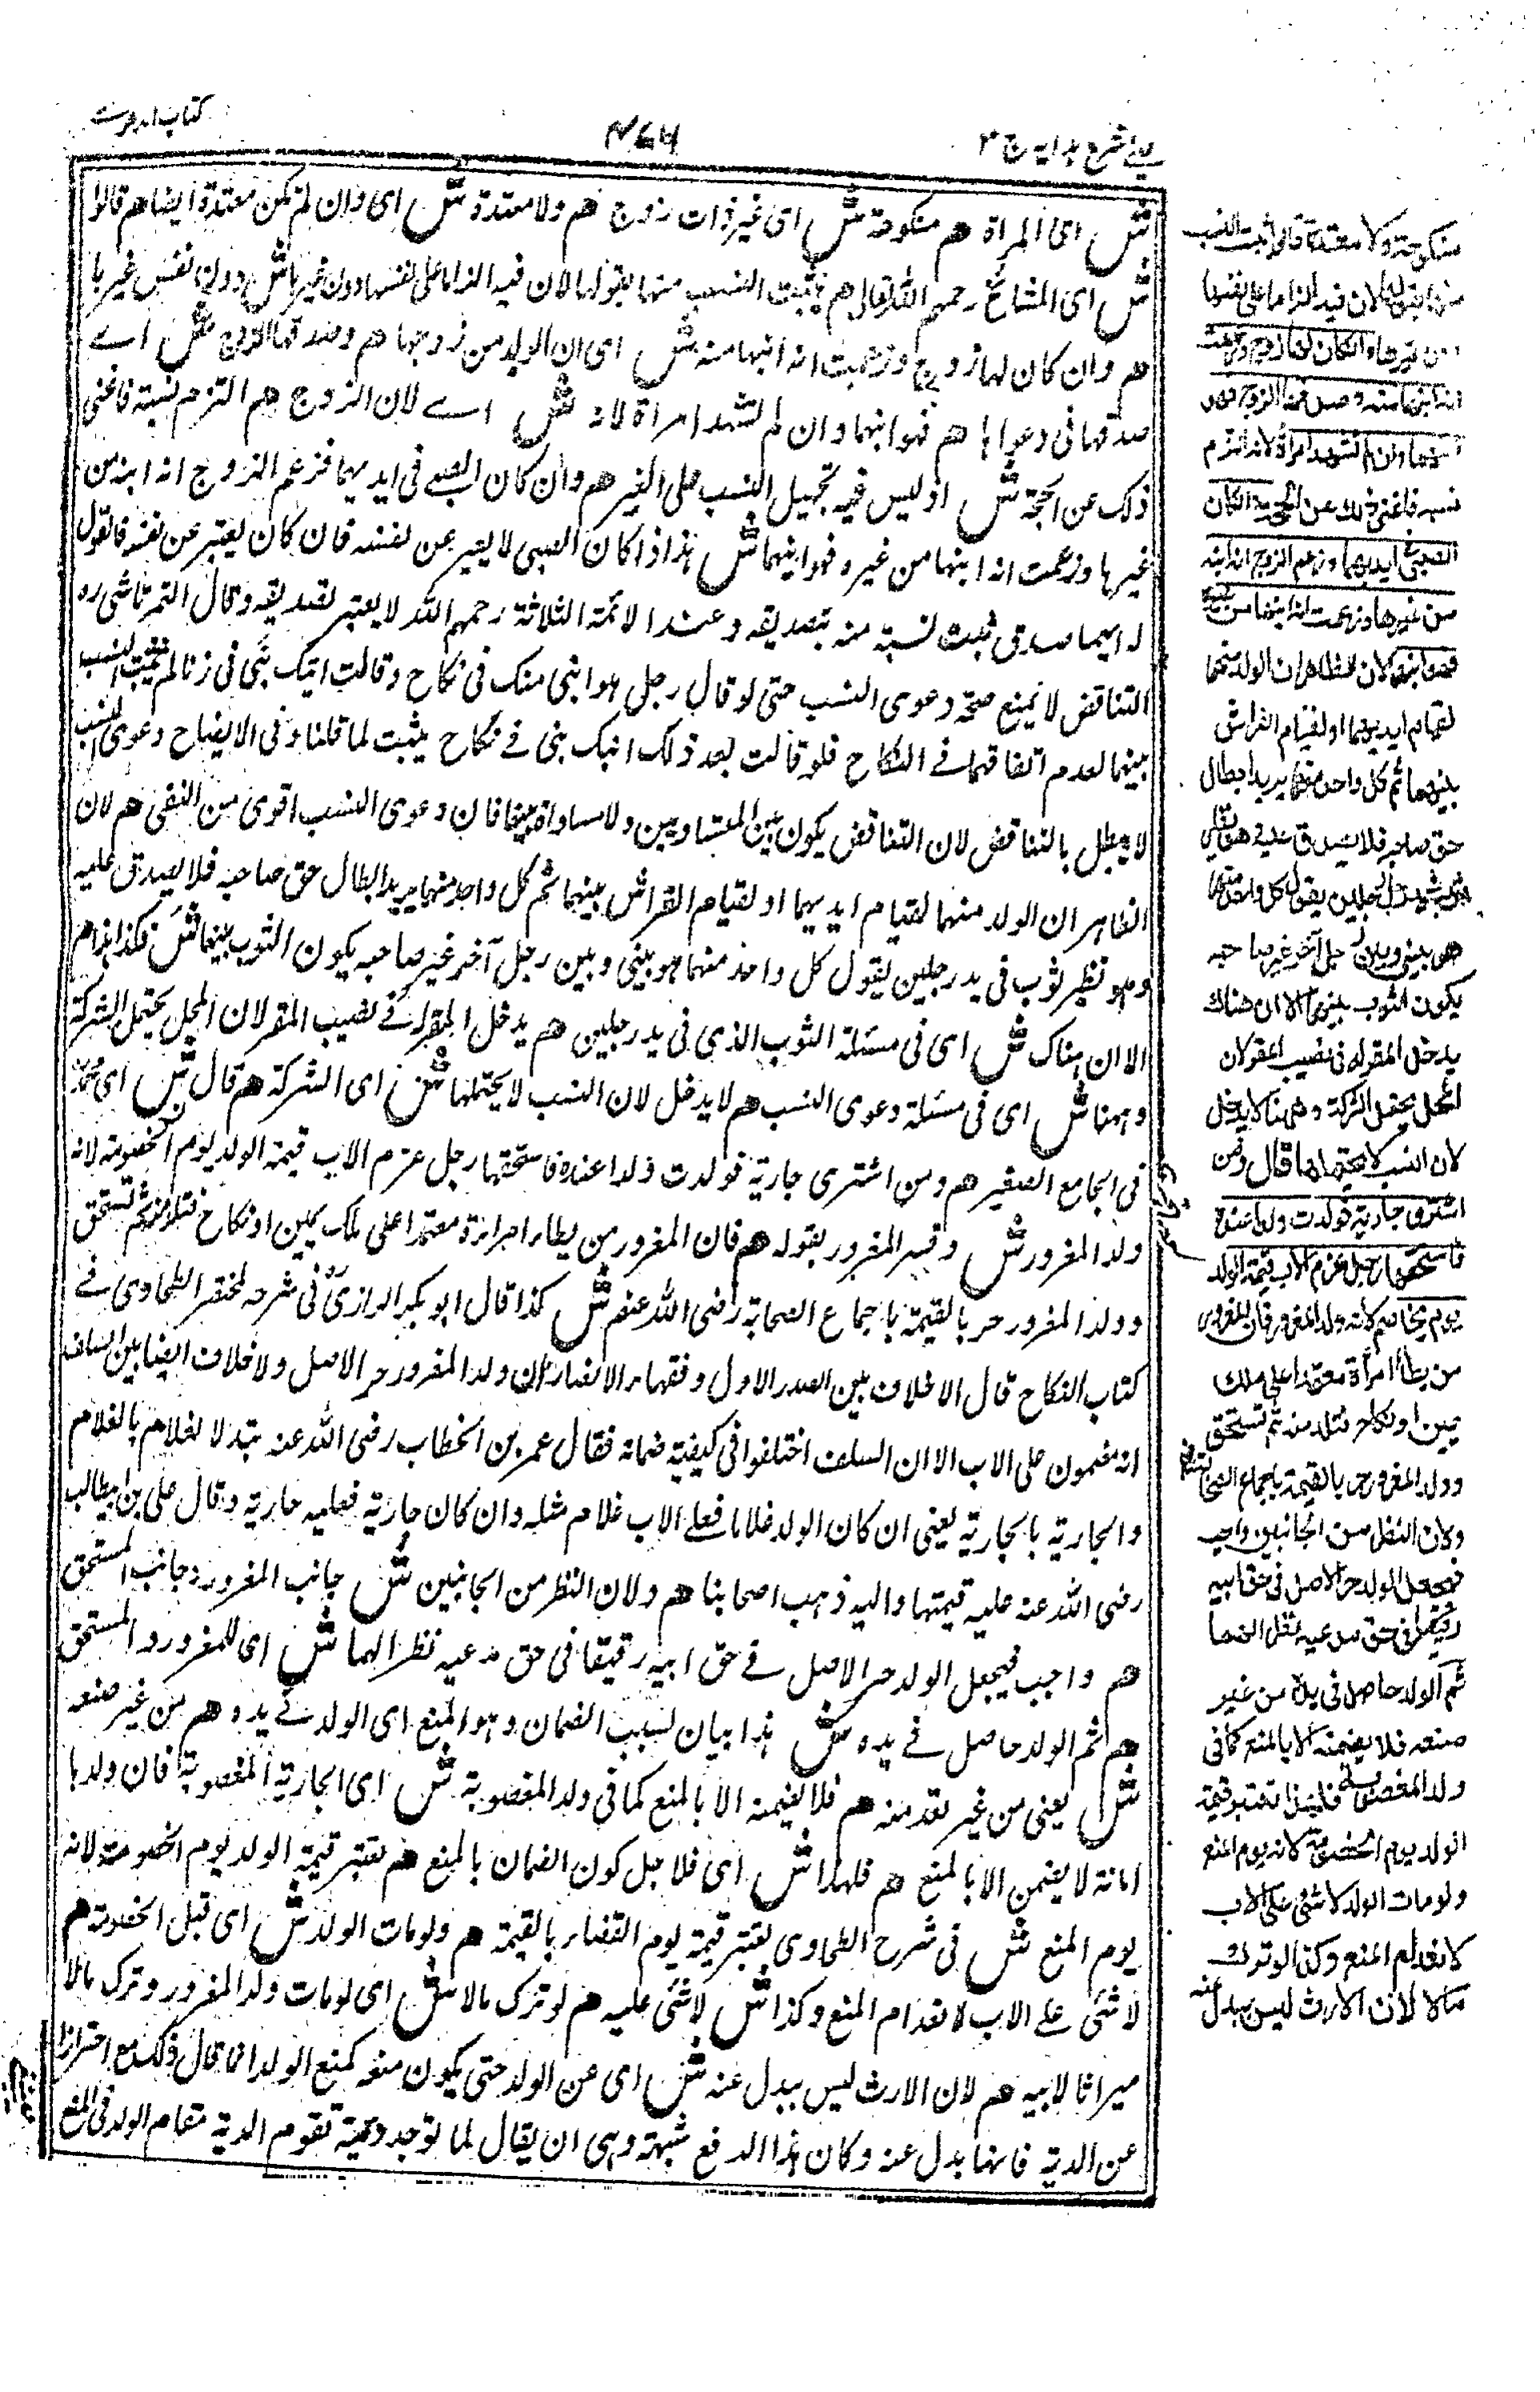 عینی شرح ہدایہ ج ۳
۴۷۶
کتاب الدعوے
ش ای المراۃ هم منکوحة ش ای غیر ذات زوج هم ولا معتدة ش ای وان لم تکن معتدة ایضا هم قالوا
ش ای المشائخ رحمهم اللہ تعالی هم یثبت النسب منها بقولها لان فیه الزاما علی نفسها دون غیرها ش دون نفس غیرہا
هم وان کان لها زوج وزعمت انه ابنها منه ش ای ان الولد من زوجها هم وصدقها الزوج ش اے
صدقها فی دعواہا هم فهو ابنهما وان لم تشهد امراة لانه ش اے لان الزوج هم التزم نسبه فاغنی
ذلک عن الحجة ش اذ لیس فیه تحمیل النسب علی الغیر هم وان کان الصبے فی ایدیهما فزعم الزوج انه ابنه من
غیرها وزعمت انه ابنها من غیرہ فهو ابنهما ش هذا اذا کان الصبی لا یعبر عن نفسه فان کان یعتبر عن نفسه فالقول
له ایهما صدق ثبت نسبه منه بتصدیقه وعند الائمة الثلاثة رحمهم اللہ لا یعتبر تصدیقه وقال التمرتاشی رہ
التناقض لا یمنع صحة دعوی النسب حتی لو قال رجل هو ابنی منک فی نکاح وقالت ابنک بنی فی زنا لم یثبت النسب
بینهما لعدم اتفاقهما فے النکاح فلو قالت بعد ذلک ابنک بنی فے نکاح یثبت لما قلنا وفی الایضاح دعوی النسب
لا یبطل بالتناقض لان التناقض یکون بین المتساویین ولا مساواة بینهما فان دعوی النسب اقوی من النفی هم لان
الظاهر ان الولد منهما لقیام ایدیهما او لقیام الفراش بینهما ثم کل واحد منهما یرید ابطال حق صاحبه فلا یصدق علیه
وهو نظیر ثوب فی ید رجلین یقول کل واحد منهما هو بینی وبین رجل آخر غیر صاحبه یکون الثوب بینهما ش فکذا هذا هم
الا ان هناک ش ای فی مسئلة الثوب الذی فی ید رجلین هم یدخل المقر له فے نصیب المقر لان المحل یحتمل الشرکة
وههنا ش ای فی مسئلة دعوی النسب هم لا یدخل لان النسب لا یحتملها ش ای الشرکة هم قال ش ای محمدؒ
فی الجامع الصغیر هم ومن اشتری جاریة فولدت ولدا عندہ فاستحقها رجل غرم الاب قیمة الولد یوم الخصومة لانه
ولد المغرور ش وفسر المغرور بقوله هم فان المغرور من یطاء امراة معتمدا علی ملک یمین او نکاح فتلد منه ثم تستحق
وولد المغرور حر بالقیمة باجماع الصحابة رضی اللہ عنهم ش کذا قال ابو بکر الرازیؒ فی شرحه لمختصر الطحاوی فے
کتاب النکاح قال لا خلاف بین الصدر الاول وفقهاء الانصار ان ولد المغرور حر الاصل ولا خلاف ایضا بین السلف
انه مضمون علی الاب الا ان السلف اختلفوا فی کیفیة ضمانه فقال عمر بن الخطاب رضی اللہ عنه یتبدل الغلام بالغلام
والجاریة بالجاریة یعنی ان کان الولد غلاما فعلے الاب غلام مثله وان کان جاریة فعلیه جاریة وقال علی بن ابیطالب
رضی اللہ عنه علیه قیمتها والیه ذهب اصحابنا هم ولان النظر من الجانبین ش جانب المغرور وجانب المستحق
هم واجب فیجعل الولد حر الاصل فے حق ابیه رقیقا فی حق مدعیه نظرا لهما ش ای للمغرور والمستحق
هم ثم الولد حاصل فے یدہ ش هذا بیان لسبب الضمان وهو المنع ای الولد فے یدہ هم من غیر صنعه
ش یعنی من غیر تعد منه هم فلا یضمنه الا بالمنع کما فی ولد المغصوبة ش ای الجاریة المغصوبة فان ولدها
امانة لا یضمن الا بالمنع هم فلهذا ش ای فلاجل کون الضمان بالمنع هم تعتبر قیمة الولد یوم الخصومة لانه
یوم المنع ش فی شرح الطحاوی یعتبر قیمة یوم القضاء بالقیمة هم ولو مات الولد ش ای قبل الخصومة هم
لا شئی علی الاب لانعدام المنع وکذا ش لا شئی علیه هم لو ترک مالا ش ای لو مات ولد المغرور وترک مالا
میراثا لابیه هم لان الارث لیس ببدل عنه ش ای عن الولد حتی یکون منعه کمنع الولد انما قال ذلک مع احترازا
عن الدیة فانها بدل عنه وکان هذا الدفع شبهة وهی ان یقال لما توجد دیته تقوم الدیة مقام الولد فی المنع
منکوحة ولا معتدة قالوا یثبت النسب
منها بقولها لان فیه الزاما علی نفسها
دون غیرها وان کان لها زوج وزعمت
انه ابنها منه وصدقها الزوج فهو
ابنهما وان لم تشهد امراة لانه التزم
نسبه فاغنی ذلک عن الحجة وان کان
الصبی فی ایدیهما وزعم الزوج انه ابنه
من غیرها وزعمت انه ابنها من غیره
فهو ابنهما لان الظاهر ان الولد منهما
لقیام ایدیهما او لقیام الفراش
بینهما ثم کل واحد منهما یرید ابطال
حق صاحبه فلا یصدق علیه وهو نظیر
ثوب فی ید رجلین یقول کل واحد منهما
هو بینی وبین رجل آخر غیر صاحبه
یکون الثوب بینهما الا ان هناک
یدخل المقر له فی نصیب المقر لان
المحل یحتمل الشرکة وههنا لا یدخل
لان النسب لا یحتملها قال ومن
اشتری جاریة فولدت ولدا عنده
فاستحقها رجل غرم الاب قیمة الولد
یوم یخاصم لانه ولد المغرور فان المغرور
من یطأ امرأة معتمدا علی ملک
یمین او نکاح فتلد منه ثم تستحق
وولد المغرور حر بالقیمة باجماع الصحابة
ولان النظر من الجانبین واجب
فیجعل الولد حر الاصل فی حق ابیه
رقیقا فی حق مدعیه نظرا لهما
ثم الولد حاصل فی یده من غیر
صنعه فلا یضمنه الا بالمنع کما فی
ولد المغصوبة فلهذا تعتبر قیمة
الولد یوم الخصومة لانه یوم المنع
ولو مات الولد لا شئ علی الاب
لانعدام المنع وکذا لو ترک
مالا لان الارث لیس ببدل عنه